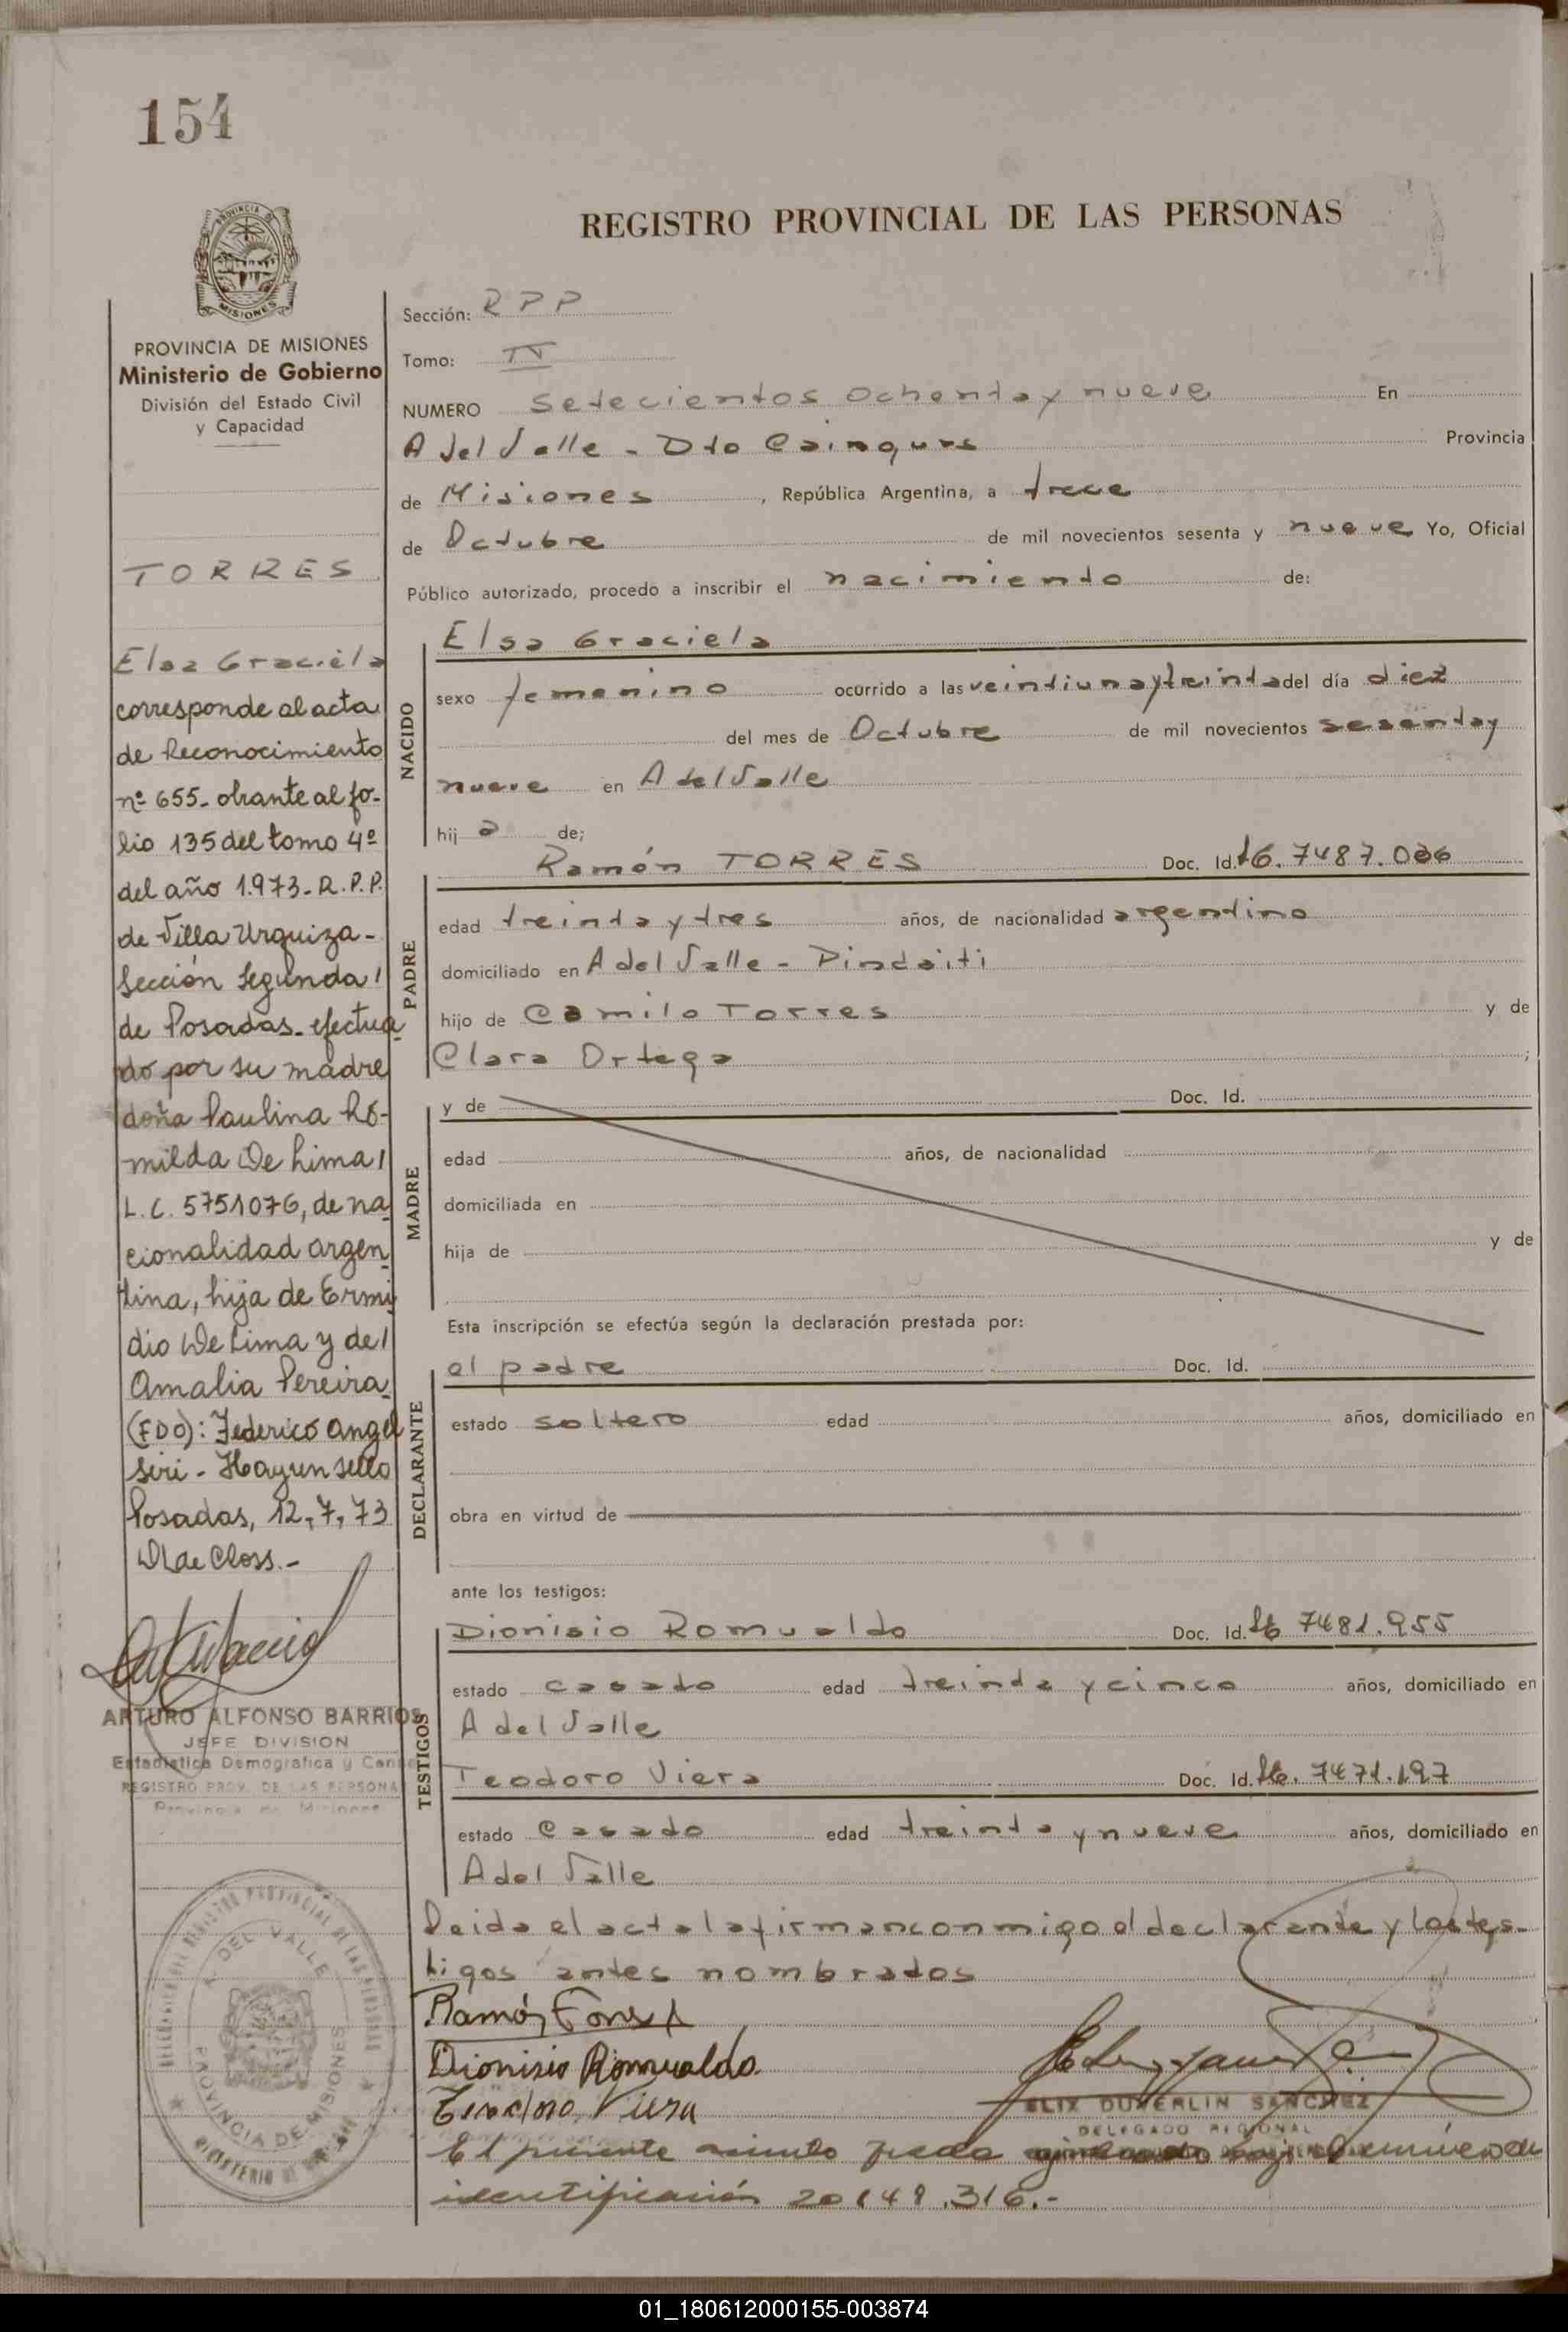 154
REGISTRO PROVINCIAL DE LAS PERSONAS
PROVINCIA DE
MISIONES
PROVINCIA DE MISIONES
Ministerio de Gobierno
División del Estado Civil
y Capacidad
TORRES
Elsa Graciela
corresponde al acta
de Reconocimiento
nº 655- obrante al fo-
lio 135 del tomo 4º
del año 1.973- R.P.P.
de Villa Urquiza-
Sección Segunda/
de Posadas- efectua
do por su madre
doña Paulina Ro-
milda De Lima/
L.C. 5751076, de na
cionalidad argen
tina, hija de Ermi
dio De Lima y de/
Amalia Pereira
(FDO): Federico Angel
Siri - Hay un sello
Posadas, 12,7,73
de Closs.-
ARTURO ALFONSO BARRIOS
JEFE DIVISION
Estadistica Demografica y Censo
REGISTRO PROV. DE LAS PERSONA
Provincia de Misiones
REGISTRO PROVINCIAL DE LAS PERSONAS
A. DEL VALLE
PROVINCIA DE MISIONES
Sección: RPP
Tomo: IV
NUMERO Setecientos ochenta y nueve En
A del Valle - Dto Cainguas Provincia
de Misiones, República Argentina, a trece
de Octubre de mil novecientos sesenta y nueve Yo, Oficial
Público autorizado, procedo a inscribir el nacimiento de:
NACIDO
Elsa Graciela
sexo femenino ocurrido a las veintiuna y treinta del día diez
del mes de Octubre de mil novecientos sesenta y
nueve en A del Valle
hij a de;
PADRE
Ramón TORRES Doc. Id. 7487.086
edad treinta y tres años, de nacionalidad argentino
domiciliado en A del Valle - Pindaiti
hijo de Camilo Torres y de
Clara Ortega ;
MADRE
y de Doc. Id.
edad años, de nacionalidad
domiciliada en
hija de y de
Esta inscripción se efectúa según la declaración prestada por:
DECLARANTE
el padre Doc. Id.
estado soltero edad años, domiciliado en
obra en virtud de
ante los testigos:
TESTIGOS
Dionisio Romualdo Doc. Id. 7481.955
estado casado edad treinta y cinco años, domiciliado en
A del Valle
Teodoro Viera Doc. Id. 7471.197
estado casado edad treinta y nueve años, domiciliado en
A del Valle
Leida el acta la firman conmigo el declarante y los tes-
tigos antes nombrados
Ramón
Dionisio Romualdo
Teodoro Viera
DUVERLIN SANCHEZ
DELEGADO REGIONAL
El presente asiento queda
identificación 20149.316.-
01_180612000155-003874